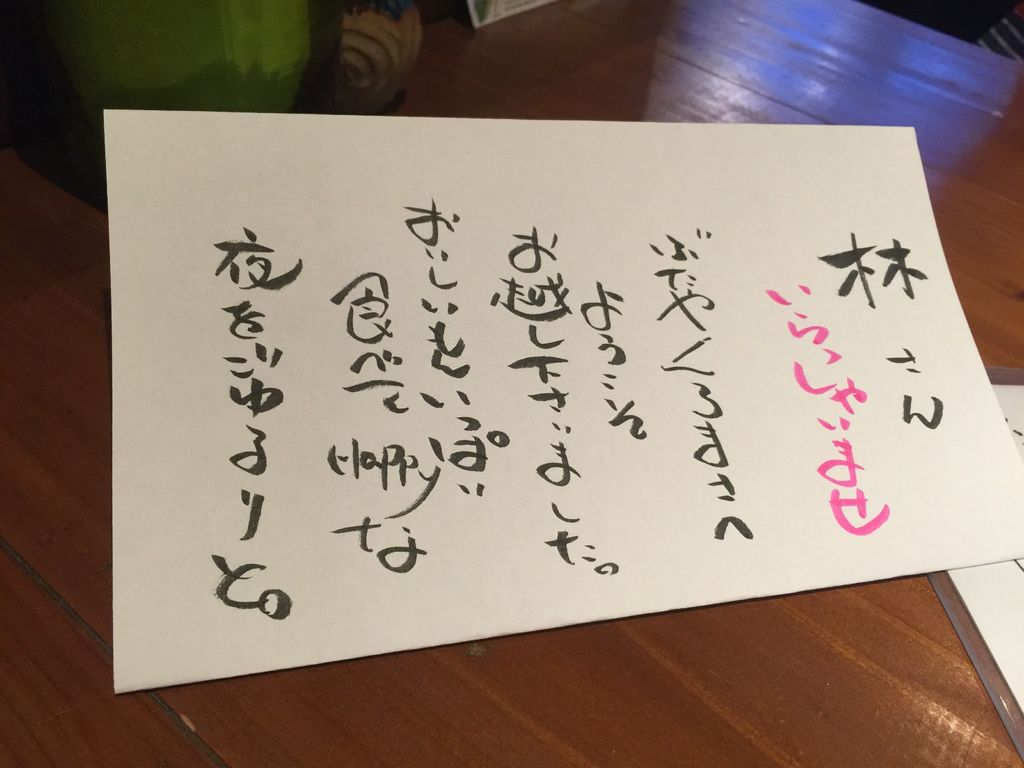 林さん
いらっしゃいませ
ぶたやくろまさへ
ようこそ
お越し下さいました。
おいしいもんいっぱい
食べてHAPPYな
夜をごゆるりと。